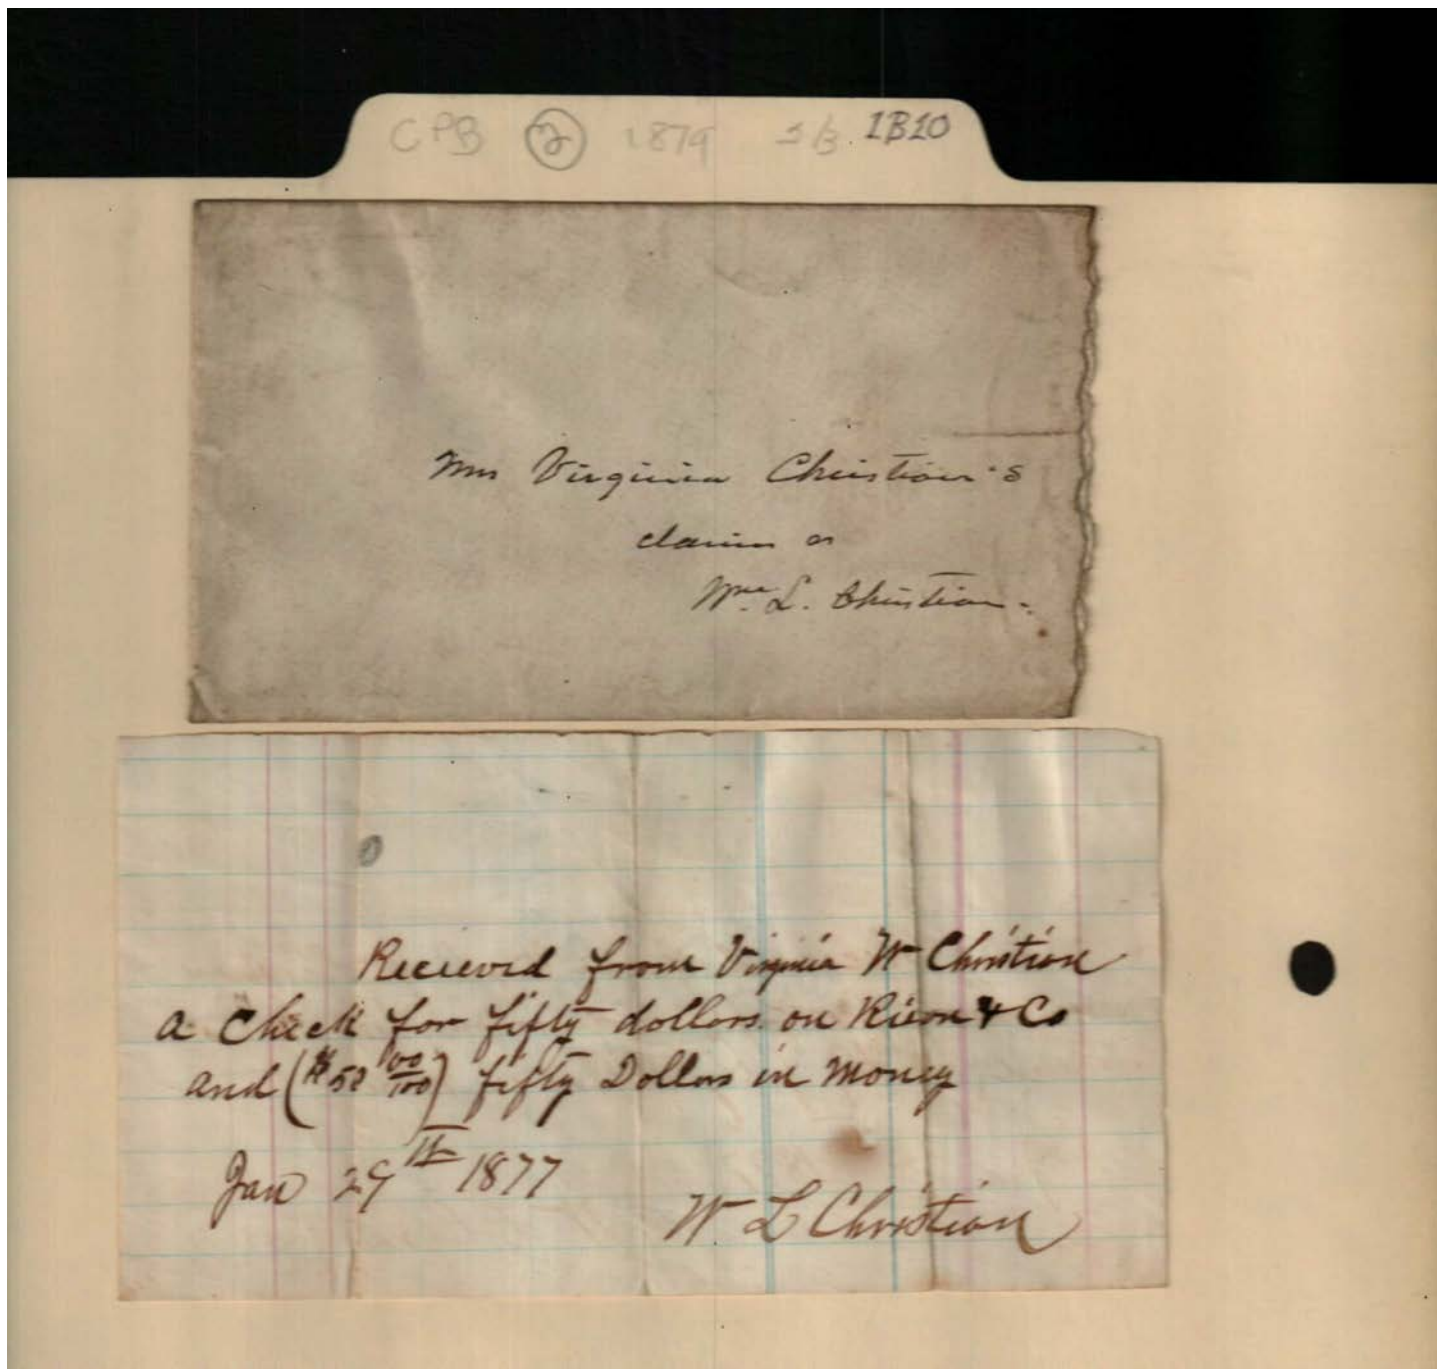 CPB 2 1879 1B10
Mrs Virginia Christian's
claim on
Wm. L. Christian.
Recieved from Virginia W Christian
a Check for fifty dollars on & Co
and ($50 00/100) fifty Dollars in money
Jan 29th 1877
W L Christian